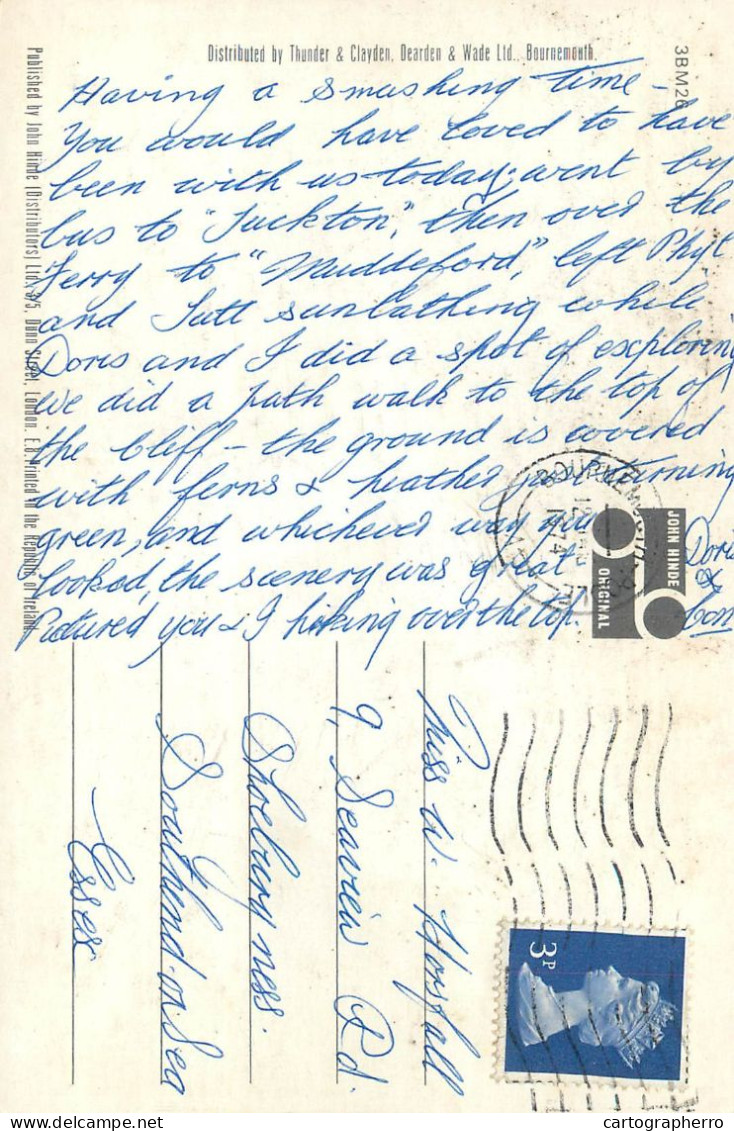 Distributed by Thunder & Clayden, Dearden & Wade Ltd., Bournemouth.
3BM26
Published by John Hinde (Distributors) Ltd., 3/5, Dunn Street, London. E.8. Printed in the Republic of Ireland
Having a smashing time –
You would have loved to have
been with us today; went by
bus to "Tuckton", then over the
Ferry to "Muddeford", left Phyl
and Tatt sunbathing while
Doris and I did a spot of exploring
We did a path walk to the top of
the Cliff – the ground is covered
with ferns & heather just turning
green, and whichever way you
looked, the scenery was great –
Pictured you & I hiking over the top.
Doris
&
Con
JOHN HINDE
ORIGINAL
BOURNEMOUTH
1974
Miss W. Horsfall
9, Seaview Rd.
Shoeburyness.
Southend-on-Sea
Essex
3P
cartographerro
delcampe.net